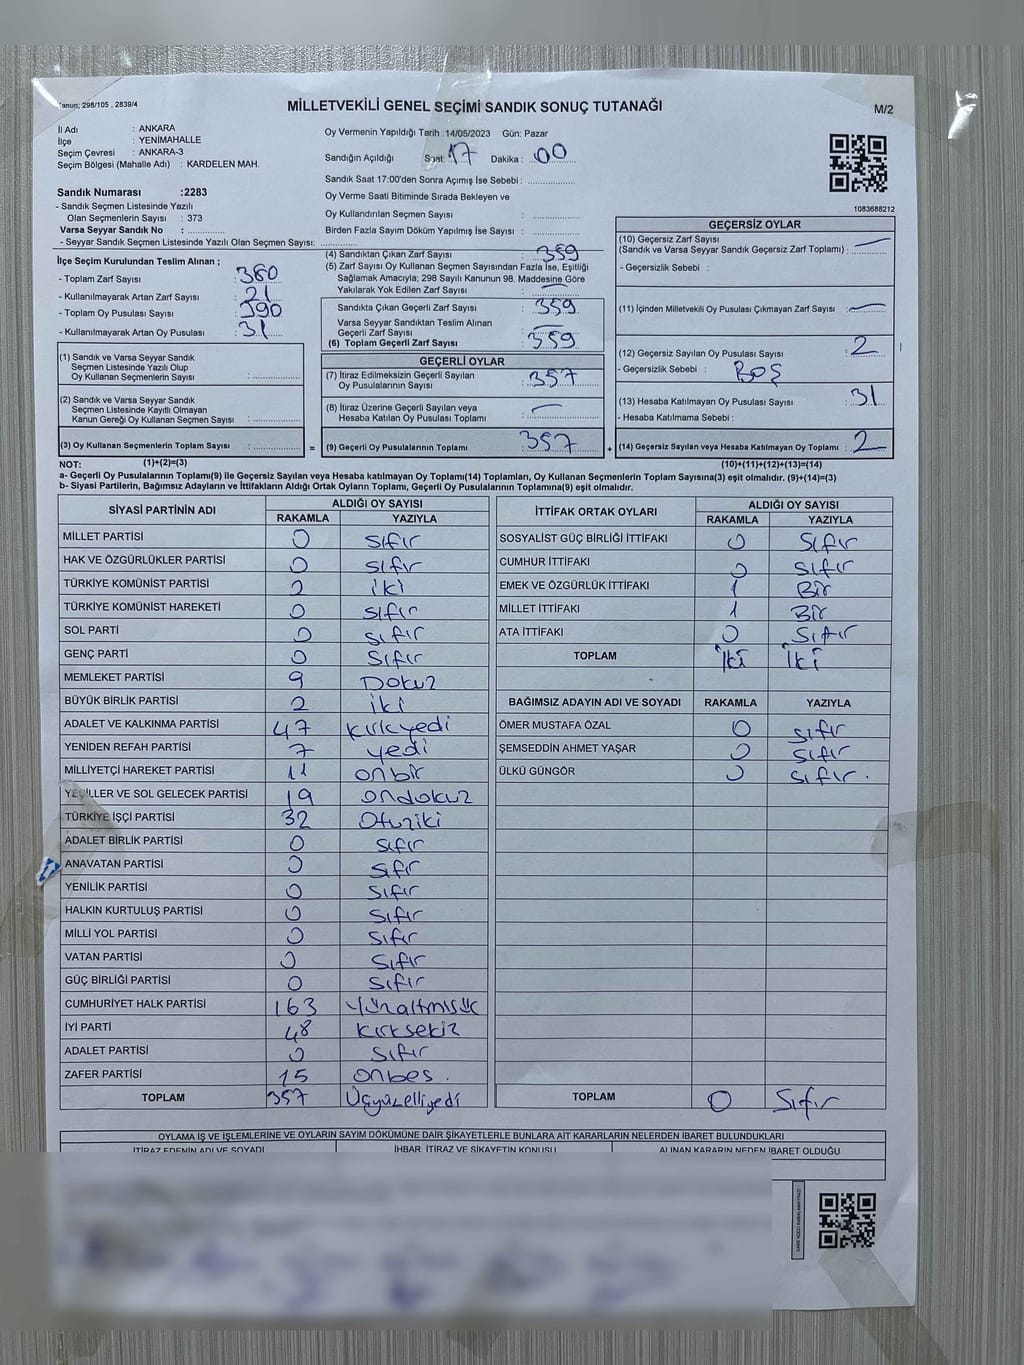 Kanun; 298/105 , 2839/4
MİLLETVEKİLİ GENEL SEÇİMİ SANDIK SONUÇ TUTANAĞI
M/2
İl Adı : ANKARA
İlçe : YENİMAHALLE
Seçim Çevresi : ANKARA-3
Seçim Bölgesi (Mahalle Adı) : KARDELEN MAH.
Sandık Numarası :2283
- Sandık Seçmen Listesinde Yazılı
Olan Seçmenlerin Sayısı : 373
Varsa Seyyar Sandık No : ..............
- Seyyar Sandık Seçmen Listesinde Yazılı Olan Seçmen Sayısı: ..............
Oy Vermenin Yapıldığı Tarih :14/05/2023 Gün: Pazar
Sandığın Açıldığı Saat: 17 Dakika : 00
Sandık Saat 17:00'den Sonra Açımış İse Sebebi : ..............
Oy Verme Saati Bitiminde Sırada Bekleyen ve
Oy Kullandırılan Seçmen Sayısı : ..............
Birden Fazla Sayım Döküm Yapılmış İse Sayısı : ..............
1083688212
İlçe Seçim Kurulundan Teslim Alınan ;
- Toplam Zarf Sayısı : 380
- Kullanılmayarak Artan Zarf Sayısı : 21
- Toplam Oy Pusulası Sayısı : 390
- Kullanılmayarak Artan Oy Pusulası : 31
(1) Sandık ve Varsa Seyyar Sandık
Seçmen Listesinde Yazılı Olup
Oy Kullanan Seçmenlerin Sayısı : ..............
(2) Sandık ve Varsa Seyyar Sandık
Seçmen Listesinde Kayıtlı Olmayan
Kanun Gereği Oy Kullanan Seçmen Sayısı : ..............
(3) Oy Kullanan Seçmenlerin Toplam Sayısı : ..............
(1)+(2)=(3)
(4) Sandıktan Çıkan Zarf Sayısı : 359
(5) Zarf Sayısı Oy Kullanan Seçmen Sayısından Fazla İse, Eşitliği
Sağlamak Amacıyla; 298 Sayılı Kanunun 98. Maddesine Göre
Yakılarak Yok Edilen Zarf Sayısı : —
Sandıkta Çıkan Geçerli Zarf Sayısı : 359
Varsa Seyyar Sandıktan Teslim Alınan
Geçerli Zarf Sayısı : —
(6) Toplam Geçerli Zarf Sayısı : 359
GEÇERLİ OYLAR
(7) İtiraz Edilmeksizin Geçerli Sayılan
Oy Pusulalarının Sayısı : 357
(8) İtiraz Üzerine Geçerli Sayılan veya
Hesaba Katılan Oy Pusulası Toplamı : —
= (9) Geçerli Oy Pusulalarının Toplamı : 357
GEÇERSİZ OYLAR
(10) Geçersiz Zarf Sayısı
(Sandık ve Varsa Seyyar Sandık Geçersiz Zarf Toplamı) : —
- Geçersizlik Sebebi :
(11) İçinden Milletvekili Oy Pusulası Çıkmayan Zarf Sayısı : —
(12) Geçersiz Sayılan Oy Pusulası Sayısı : 2
- Geçersizlik Sebebi : BOŞ
(13) Hesaba Katılmayan Oy Pusulası Sayısı : 31
- Hesaba Katılmama Sebebi :
+ (14) Geçersiz Sayılan veya Hesaba Katılmayan Oy Toplamı : 2
(10)+(11)+(12)+(13)=(14)
NOT:
a- Geçerli Oy Pusulalarının Toplamı(9) ile Geçersiz Sayılan veya Hesaba katılmayan Oy Toplamı(14) Toplamları, Oy Kullanan Seçmenlerin Toplam Sayısına(3) eşit olmalıdır. (9)+(14)=(3)
b- Siyasi Partilerin, Bağımsız Adayların ve İttifakların Aldığı Ortak Oyların Toplamı, Geçerli Oy Pusulalarının Toplamına(9) eşit olmalıdır.
SİYASİ PARTİNİN ADI ALDIĞI OY SAYISI
RAKAMLA YAZIYLA
MİLLET PARTİSİ 0 sıfır
HAK VE ÖZGÜRLÜKLER PARTİSİ 0 sıfır
TÜRKİYE KOMÜNİST PARTİSİ 2 iki
TÜRKİYE KOMÜNİST HAREKETİ 0 sıfır
SOL PARTİ 0 sıfır
GENÇ PARTİ 0 sıfır
MEMLEKET PARTİSİ 9 Dokuz
BÜYÜK BİRLİK PARTİSİ 2 iki
ADALET VE KALKINMA PARTİSİ 47 kırkyedi
YENİDEN REFAH PARTİSİ 7 yedi
MİLLİYETÇİ HAREKET PARTİSİ 11 onbir
YEŞİLLER VE SOL GELECEK PARTİSİ 19 ondokuz
TÜRKİYE İŞÇİ PARTİSİ 32 Otuziki
ADALET BİRLİK PARTİSİ 0 sıfır
ANAVATAN PARTİSİ 0 sıfır
YENİLİK PARTİSİ 0 sıfır
HALKIN KURTULUŞ PARTİSİ 0 sıfır
MİLLİ YOL PARTİSİ 0 sıfır
VATAN PARTİSİ 0 sıfır
GÜÇ BİRLİĞİ PARTİSİ 0 sıfır
CUMHURİYET HALK PARTİSİ 163 Yüzaltmışüç
İYİ PARTİ 48 kırksekiz
ADALET PARTİSİ 0 sıfır
ZAFER PARTİSİ 15 onbes.
TOPLAM 357 Üçyüzelliyedi
İTTİFAK ORTAK OYLARI ALDIĞI OY SAYISI
RAKAMLA YAZIYLA
SOSYALİST GÜÇ BİRLİĞİ İTTİFAKI 0 Sıfır
CUMHUR İTTİFAKI 0 sıfır
EMEK VE ÖZGÜRLÜK İTTİFAKI 1 Bir
MİLLET İTTİFAKI 1 Bir
ATA İTTİFAKI 0 Sıfır
TOPLAM iki iki
BAĞIMSIZ ADAYIN ADI VE SOYADI RAKAMLA YAZIYLA
ÖMER MUSTAFA ÖZAL 0 sıfır
ŞEMSEDDİN AHMET YAŞAR 0 sıfır
ÜLKÜ GÜNGÖR 0 sıfır.
TOPLAM 0 Sıfır
OYLAMA İŞ VE İŞLEMLERİNE VE OYLARIN SAYIM DÖKÜMÜNE DAİR ŞİKAYETLERLE BUNLARA AİT KARARLARIN NELERDEN İBARET BULUNDUKLARI
İTİRAZ EDENİN ADI VE SOYADI İHBAR, İTİRAZ VE ŞİKAYETİN KONUSU ALINAN KARARIN NEDEN İBARET OLDUĞU